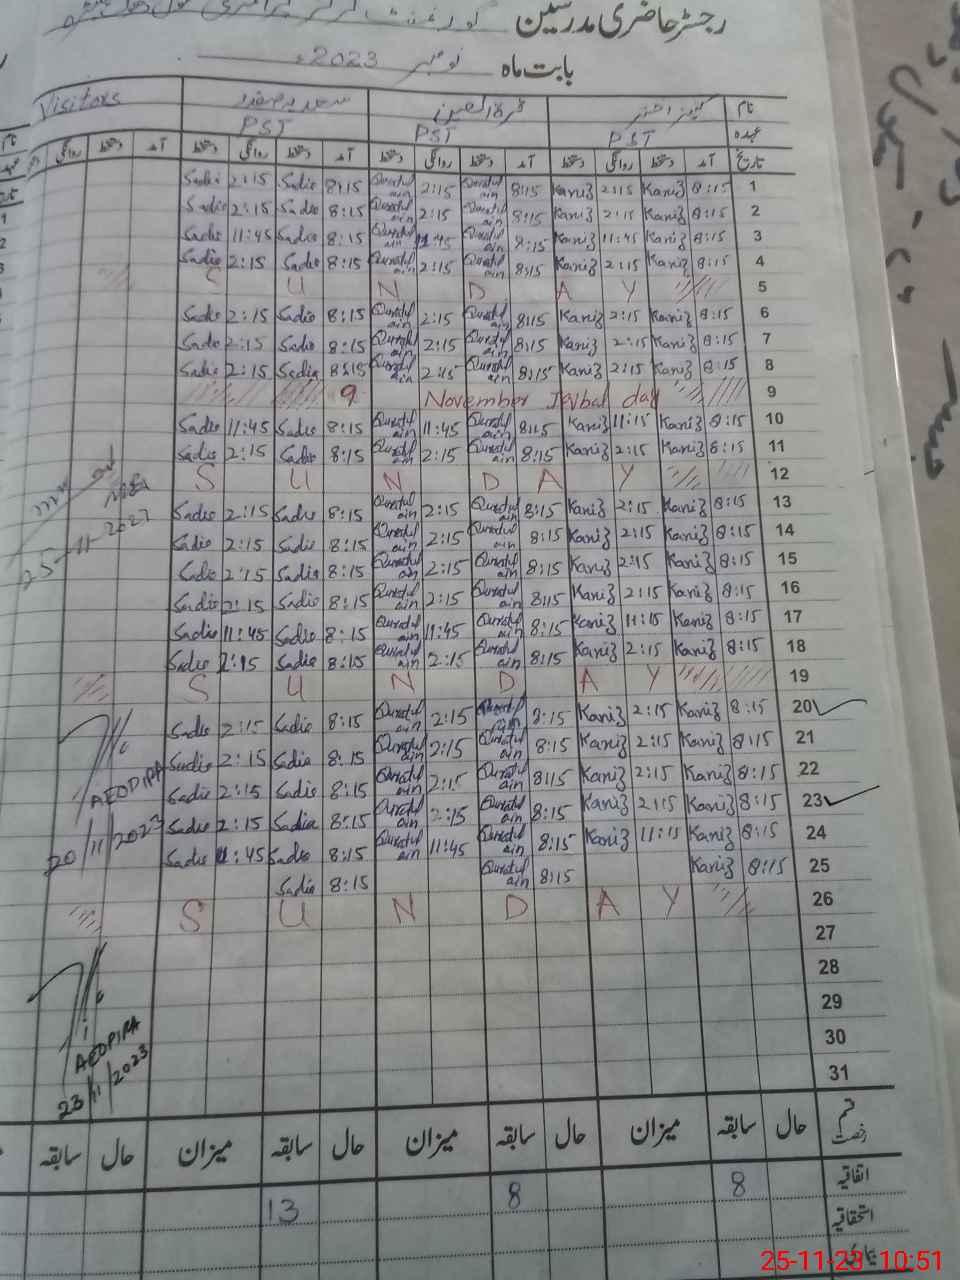 رجسٹر حاضری مدرسین گورنمنٹ گرلز پرائمری سکول
بابت ماہ نومبر 2023ء
نام کنیز اختر قرۃ العین Visitors
عہدہ PST PST PST
تاریخ آمد دستخط روانگی دستخط آمد دستخط روانگی دستخط آمد دستخط روانگی دستخط آمد دستخط روانگی
1 8:15 Kaniz 2:15 Kaniz 8:15 Quratul ain 2:15 Quratul ain 8:15 Sadia 2:15 Sadia
2 8:15 Kaniz 2:15 Kaniz 8:15 Quratul ain 2:15 Quratul ain 8:15 Sadia 2:15 Sadia
3 8:15 Kaniz 11:45 Kaniz 8:15 Quratul ain 11:45 Quratul ain 8:15 Sadia 11:45 Sadia
4 8:15 Kaniz 2:15 Kaniz 8:15 Quratul ain 2:15 Quratul ain 8:15 Sadia 2:15 Sadia
5 S U N D A Y
6 8:15 Kaniz 2:15 Kaniz 8:15 Quratul ain 2:15 Quratul ain 8:15 Sadia 2:15 Sadia
7 8:15 Kaniz 2:15 Kaniz 8:15 Quratul ain 2:15 Quratul ain 8:15 Sadia 2:15 Sadia
8 8:15 Kaniz 2:15 Kaniz 8:15 Quratul ain 2:15 Quratul ain 8:15 Sadia 2:15 Sadia
9 9 November Iqbal day
10 8:15 Kaniz 11:15 Kaniz 8:15 Quratul ain 11:45 Quratul ain 8:15 Sadia 11:45 Sadia
11 8:15 Kaniz 2:15 Kaniz 8:15 Quratul ain 2:15 Quratul ain 8:15 Sadia 2:15 Sadia
12 S U N D A Y
13 8:15 Kaniz 2:15 Kaniz 8:15 Quratul ain 2:15 Quratul ain 8:15 Sadia 2:15 Sadia
14 8:15 Kaniz 2:15 Kaniz 8:15 Quratul ain 2:15 Quratul ain 8:15 Sadia 2:15 Sadia
15 8:15 Kaniz 2:15 Kaniz 8:15 Quratul ain 2:15 Quratul ain 8:15 Sadia 2:15 Sadia
16 8:15 Kaniz 2:15 Kaniz 8:15 Quratul ain 2:15 Quratul ain 8:15 Sadia 2:15 Sadia
17 8:15 Kaniz 11:15 Kaniz 8:15 Quratul ain 11:45 Quratul ain 8:15 Sadia 11:45 Sadia
18 8:15 Kaniz 2:15 Kaniz 8:15 Quratul ain 2:15 Quratul ain 8:15 Sadia 2:15 Sadia
19 S U N D A Y
20 8:15 Kaniz 2:15 Kaniz 8:15 Quratul ain 2:15 Quratul ain 8:15 Sadia 2:15 Sadia
21 8:15 Kaniz 2:15 Kaniz 8:15 Quratul ain 2:15 Quratul ain 8:15 Sadia 2:15 Sadia
22 8:15 Kaniz 2:15 Kaniz 8:15 Quratul ain 2:15 Quratul ain 8:15 Sadia 2:15 Sadia
23 8:15 Kaniz 2:15 Kaniz 8:15 Quratul ain 2:15 Quratul ain 8:15 Sadia 2:15 Sadia
24 8:15 Kaniz 11:15 Kaniz 8:15 Quratul ain 11:45 Quratul ain 8:15 Sadia 11:45 Sadia
25 8:15 Kaniz 8:15 Quratul ain 8:15 Sadia
26 S U N D A Y
27
28
29
30
31
25-11-2023
AEODIPA
20/11/2023
AEOPIPA
23/11/2023
قسم رخصت حال سابقہ میزان حال سابقہ میزان حال سابقہ میزان حال سابقہ
اتفاقیہ 8 8 13
استحقاقیہ
بیماری
25-11-23 10:51